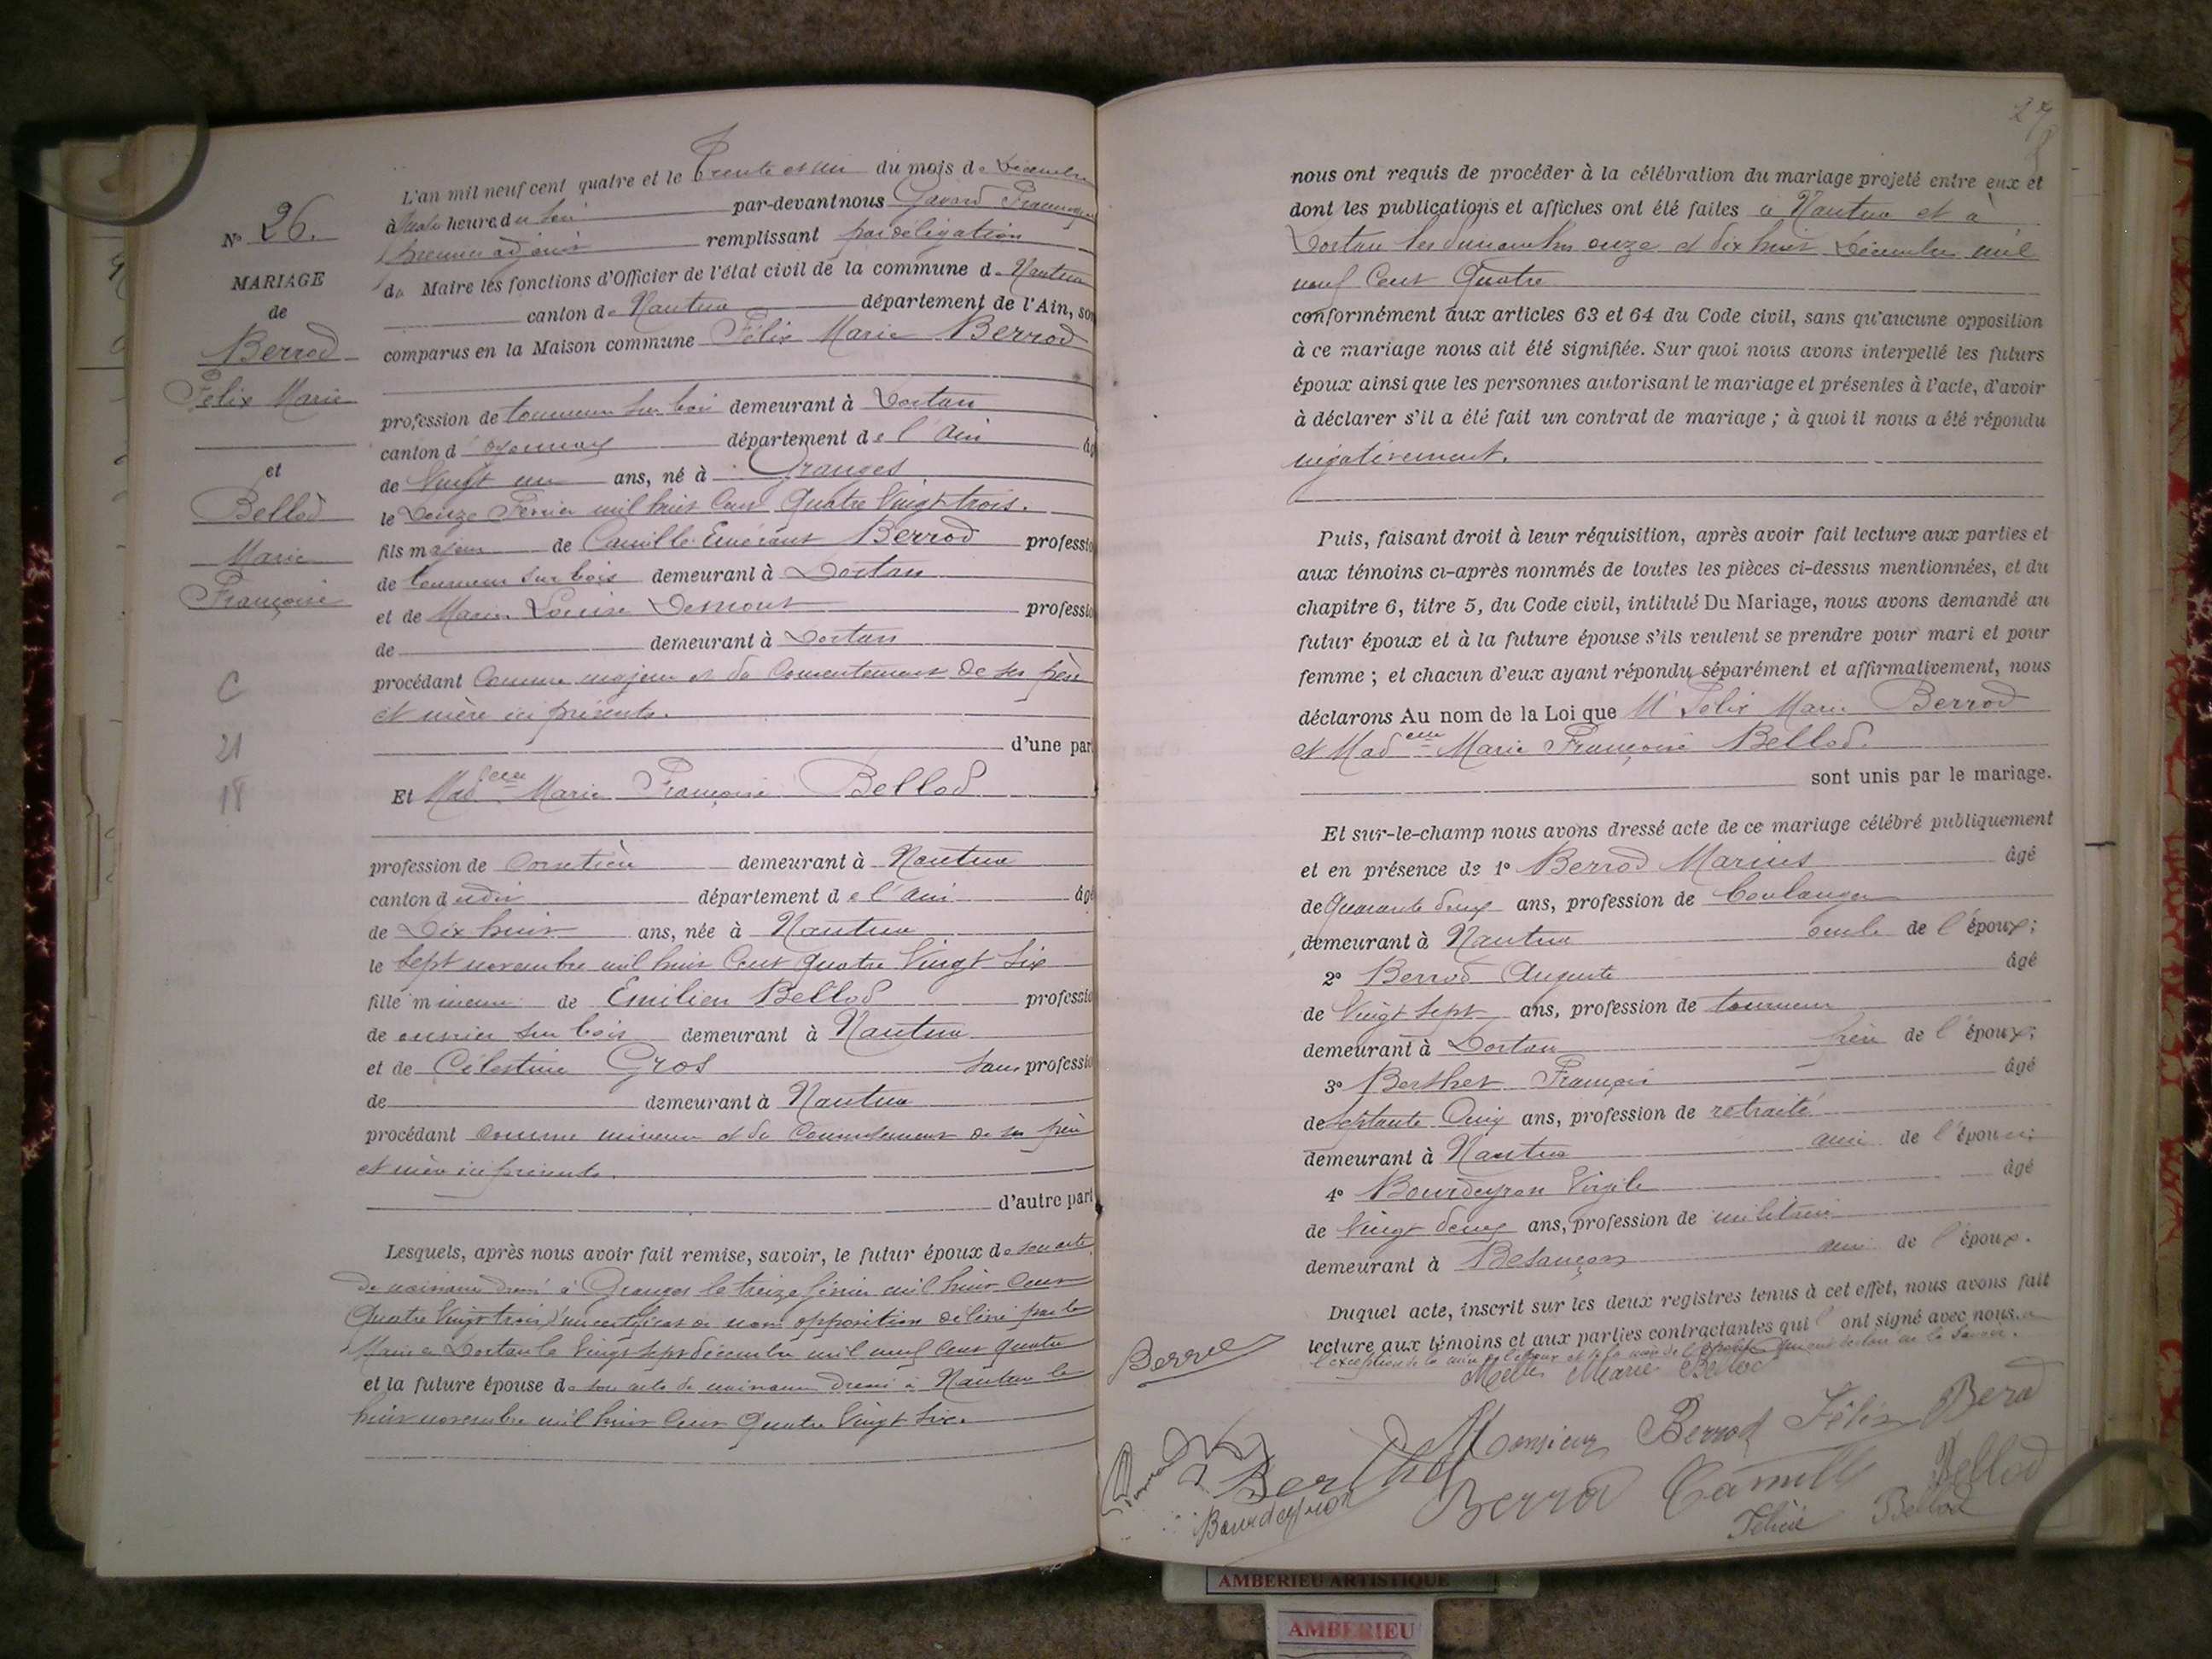 L'an mil neuf cent quatre et le Trente et un du mois de Décembre
à heure du Soir par-devant nous Gavand François
premier adjoint remplissant par délégation
du Maire les fonctions d'Officier de l'état civil de la commune de Nantua
canton de Nantua département de l'Ain, son
comparus en la Maison commune Félix Marie Berrod
profession de tourneur sur bois demeurant à Dortan
canton d'Oyonnax département de l'Ain âg
de Vingt un ans, né à Granges
le Douze Février mil huit Cent Quatre Vingt trois.
fils majeur de Camille Emérant Berrod professio
de tourneur sur bois demeurant à Dortan
et de Marie Louise professio
de demeurant à Dortan
procédant Comme majeur et du Consentement de ses père
et mère ici présents.
d'une par
Et Mad elle Marie Françoise Bellod
profession de Corsetière demeurant à Nantua
canton dudit département de l'Ain âgé
de Dix huit ans, née à Nantua
le Sept novembre mil huit Cent Quatre Vingt Six
fille mineure de Emilien Bellod professio
de ouvrier sur bois demeurant à Nantua
et de Célestine Gros Sans professio
de demeurant à Nantua
procédant comme mineure et du Consentement de ses père
et mère ici présents.
d'autre part
Lesquels, après nous avoir fait remise, savoir, le futur époux de son acte
de naissance dressé à Granges le treize février mil huit Cent
Quatre Vingt trois, d'un certificat de non opposition délivré par le
Maire de Dortan le Vingt sept décembre mil neuf Cent quatre
et la future épouse de son acte de naissance dressé à Nantua le
huit novembre mil huit Cent Quatre Vingt Six.
N° 26.
MARIAGE
de
Berrod
Félix Marie
et
Bellod
Marie
Françoise
C
21
18
27
nous ont requis de procéder à la célébration du mariage projeté entre eux et
dont les publications et affiches ont été faites à Nantua et à
Dortan les dimanches onze et dix huit Décembre mil
neuf Cent Quatre
conformément aux articles 63 et 64 du Code civil, sans qu'aucune opposition
à ce mariage nous ait été signifiée. Sur quoi nous avons interpellé les futurs
époux ainsi que les personnes autorisant le mariage et présentes à l'acte, d'avoir
à déclarer s'il a été fait un contrat de mariage ; à quoi il nous a été répondu
négativement.
Puis, faisant droit à leur réquisition, après avoir fait lecture aux parties et
aux témoins ci-après nommés de toutes les pièces ci-dessus mentionnées, et du
chapitre 6, titre 5, du Code civil, intitulé Du Mariage, nous avons demandé au
futur époux et à la future épouse s'ils veulent se prendre pour mari et pour
femme ; et chacun d'eux ayant répondu séparément et affirmativement, nous
déclarons Au nom de la Loi que Mr Félix Marie Berrod
et Mad elle Marie Françoise Bellod.
sont unis par le mariage.
Et sur-le-champ nous avons dressé acte de ce mariage célébré publiquement
et en présence de 1° Berrod Marius âgé
de Quarante deux ans, profession de boulanger
demeurant à Nantua oncle de l'époux;
2° Berrod Auguste âgé
de Vingt sept ans, profession de tourneur
demeurant à Dortan frère de l'époux;
3° Berthet François âgé
de Septante Cinq ans, profession de retraité
demeurant à Nantua ami de l'épouse;
4° Bourdeyron Virgile âgé
de Vingt deux ans, profession de militaire
demeurant à Besançon ami de l'époux.
Duquel acte, inscrit sur les deux registres tenus à cet effet, nous avons fait
lecture aux témoins et aux parties contractantes qui ont signé avec nous à
l'exception de la mère de l'époux et de la mère de l'épouse qui ont déclaré ne le Savoir.
Melle Marie Bellod
Monsieur Berrod Félix
Berthet
Berrod Camille Bellod
Bourdeyron
Félicie Bellod
AMBERIEU ARTISTIQUE
AMBERIEU